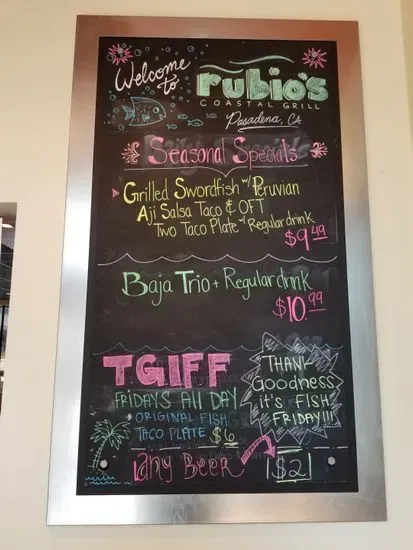 Welcome to
rubio's
COASTAL GRILL
Pasadena, CA
Seasonal Specials
Grilled Swordfish w/ Peruvian
Aji Salsa Taco & OFT
Two Taco Plate w/ Regular drink
$9.49
Baja Trio + Regular drink
$10.99
TGIFF
FRIDAYS All DAY
*ORIGINAL FISH
TACO PLATE $6
THANK
Goodness
it's FISH
FRIDAY!!!
Any BEER $2